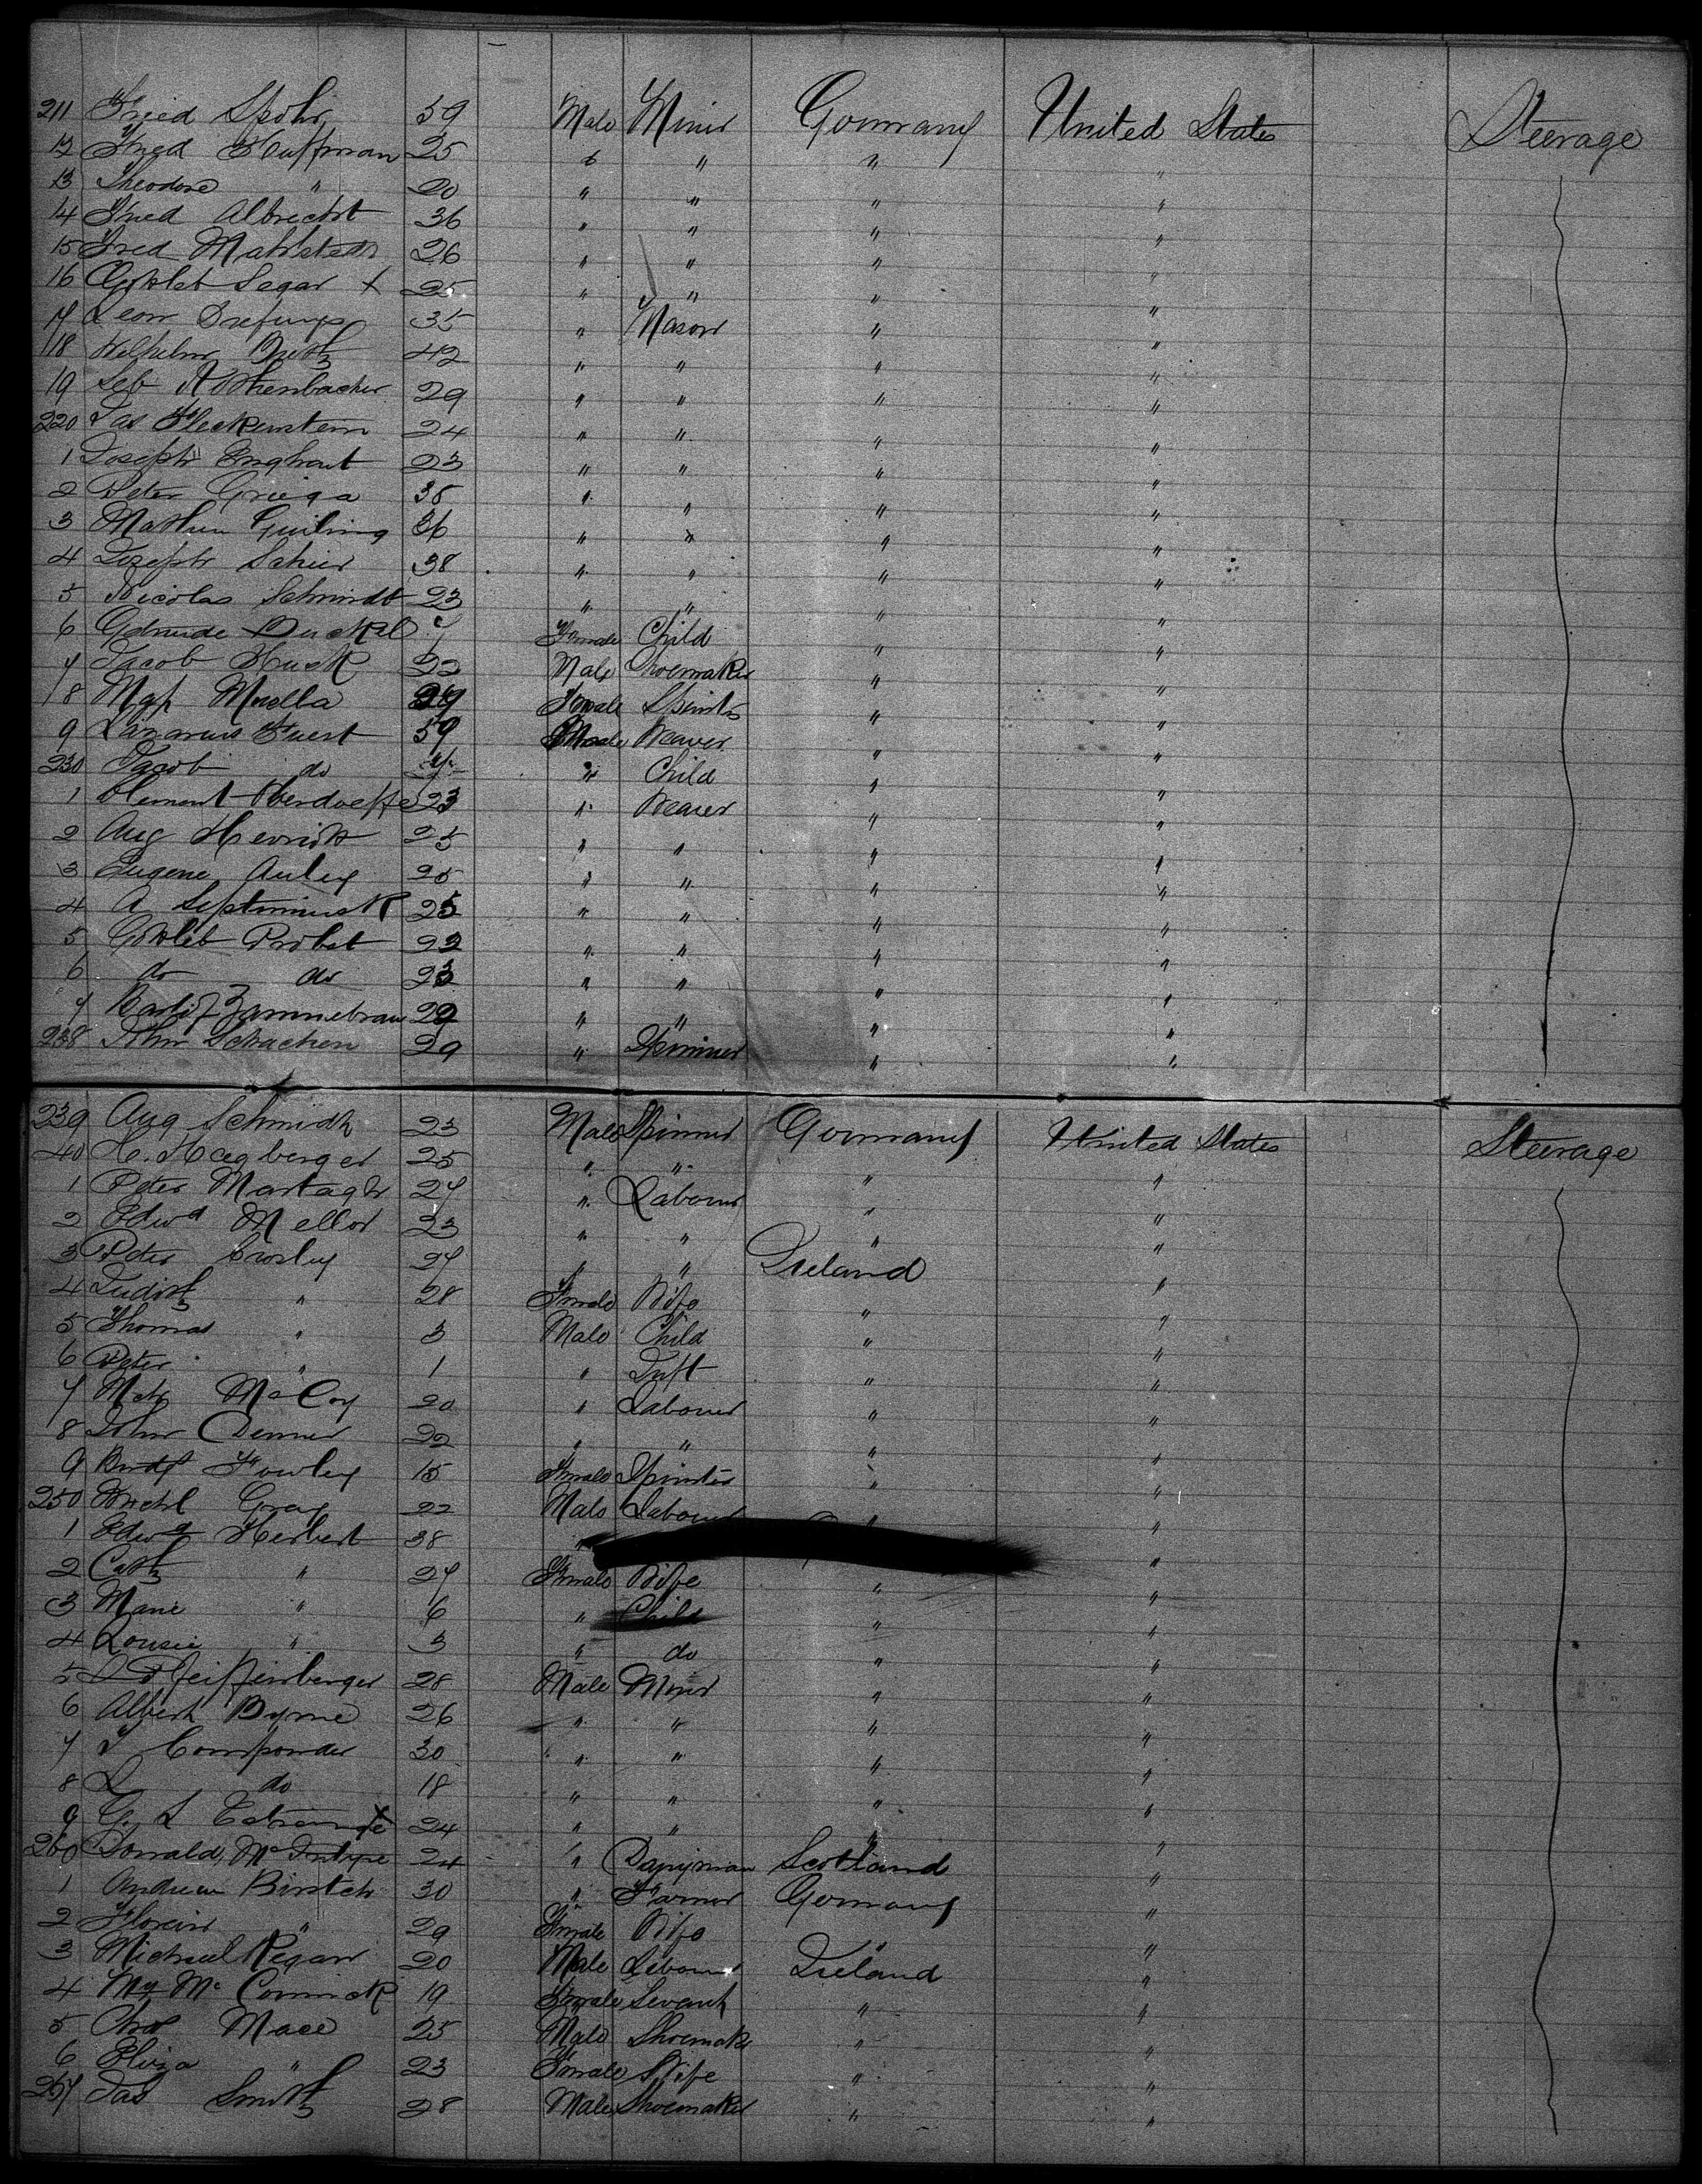 211 Fried Spohr 59 Male Miner Germany United States Steerage
12 Fred Huffman 25 " " " "
13 Theodore " 20 " " " "
14 Fred Albrecht 36 " " " "
15 Fred Mahlstedt 26 " " " "
16 Gottleb Segar X 25 " " " "
17 Leon 35 " Mason " "
118 Wilhelm 42 " " " "
19 Seb 29 " " " "
220 Jas Fleckenstein 24 " " " "
1 Joseph Enghart 23 " " " "
2 Peter Griega 35 " " " "
3 Mathew Guiling 36 " " " "
4 Joseph Schier 38 " " " "
5 Nicolas Schmidt 23 " " " "
6 Gertrude Female Child " "
7 Jacob Husk 22 Male Shoemaker " "
18 Mgt Muella 29 Female Spinstr " "
9 Lazarus Fuerst 59 Male Weaver " "
230 Jacob do " Child " "
1 Clement 23 " Weaver " "
2 Aug 25 " " " "
3 Eugene Auley 25 " " " "
4 A 25 " " " "
5 Gottleb Probst 22 " " " "
6 do do 23 " " " "
7 29 " " " "
238 John Schachen 29 " Spinner " "
239 Aug Schmidt 23 Male Spinner Germany United States Steerage
40 H. Hagberger 25 " " " "
1 Peter 27 " Labourer " "
2 Edwd Mellor 23 " " " "
3 Peter Crosley 27 " " Ireland "
4 Judith " 28 Female Wife " "
5 Thomas " 3 Male Child " "
6 Peter " 1 " Inft " "
7 McCoy 20 " Labourer " "
8 John Denner 22 " " " "
9 Bridgt Fowley 15 Female Spinster " "
250 Michl Gray 22 Male Labourer " "
1 Edwd Herbert 38 " "
2 Cath " 27 Female Wife " "
3 Marie " 6 " Child " "
4 Lousie " 3 " do " "
5 Pfeiffenberger 28 Male Miner " "
6 Albert Byrne 26 " " " "
7 30 " " " "
8 L do 18 " " " "
9 G. L 24 " " " "
260 Donald McIntyre 24 " Scotland "
1 Andrew Birstch 30 " Farmer Germany "
2 " 29 Female Wife " "
3 Michael Regan 20 Male Labourer Ireland "
4 My McCormick 19 Female Servant " "
5 Chas Mace 25 Male Shoemaker " "
6 Eliza " 23 Female Wife " "
267 Jas Smith 28 Male Shoemaker " "